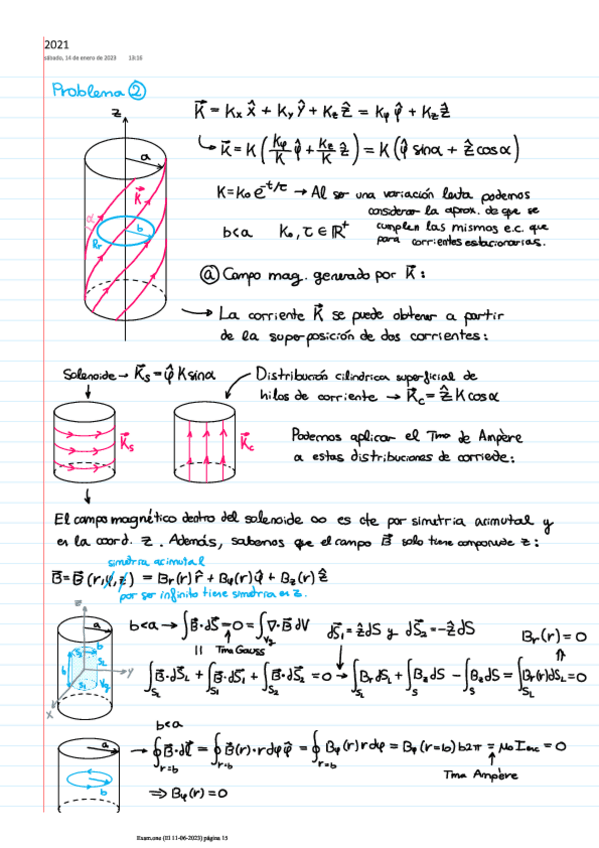 2021
sábado, 14 de enero de 2023 13:16
Problema ②
K⃗ = Kx x̂ + Ky ŷ + Kz ẑ = Kφ φ̂ + Kz ẑ
↳ K⃗ = K (Kφ/K φ̂ + Kz/K ẑ) = K (φ̂ sinα + ẑ cosα)
z
a
K⃗
α
b
Rr
K = K₀ e^(-t/τ) → Al ser una variación lenta podemos
considerar la aprox. de que se
cumplen las mismas e.c. que
para corrientes estacionarias.
b<a K₀, τ ∈ ℝ⁺
ⓐ Campo mag. generado por K⃗ :
→ La corriente K⃗ se puede obtener a partir
de la superposición de dos corrientes:
Solenoide → K⃗s = φ̂ K sinα
Distribución cilíndrica superficial de
hilos de corriente → K⃗c = ẑ K cosα
K⃗s
K⃗c
Podemos aplicar el Tma de Ampère
a estas distribuciones de corriente:
El campo magnético dentro del solenoide ∞ es cte por simetría acimutal y
en la coord. z. Además, sabemos que el campo B⃗ solo tiene componente z:
simetría acimutal
B⃗ = B⃗ (r, φ, z) = Br(r) r̂ + Bφ(r) φ̂ + Bz(r) ẑ
por ser infinito tiene simetría en z.
z
a
b
S2
SL
h
S1
Vg
y
x
b<a → ∫B⃗·dS⃗ = 0 = ∫Vg ∇·B⃗ dV
Tma Gauss
dS⃗1 = ẑ dS y dS⃗2 = -ẑ dS
Br(r) = 0
∫SL B⃗·dS⃗L + ∫S1 B⃗·dS⃗1 + ∫S2 B⃗·dS⃗2 = 0 → ∫SL Br dSL + ∫S1 Bz dS - ∫S2 Bz dS = ∫SL Br(r) dSL = 0
b<a
a
b
→ ∮r=b B⃗·dl⃗ = ∮r=b B⃗(r)·r dφ φ̂ = ∮r=b Bφ(r) r dφ = Bφ(r=b) b2π = μ₀ Ienc = 0
Tma Ampère
⇒ Bφ(r) = 0
Exam.one (EI 11-06-2023) página 15